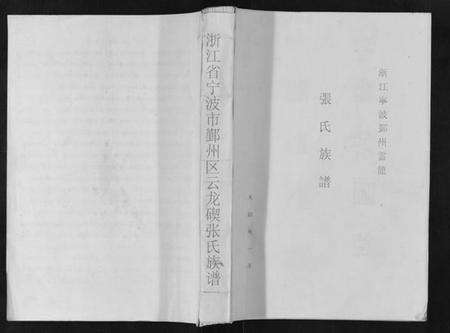 浙江宁波鄞州云龙
張氏族譜
浙江省宁波市鄞州区云龙碶张氏族谱